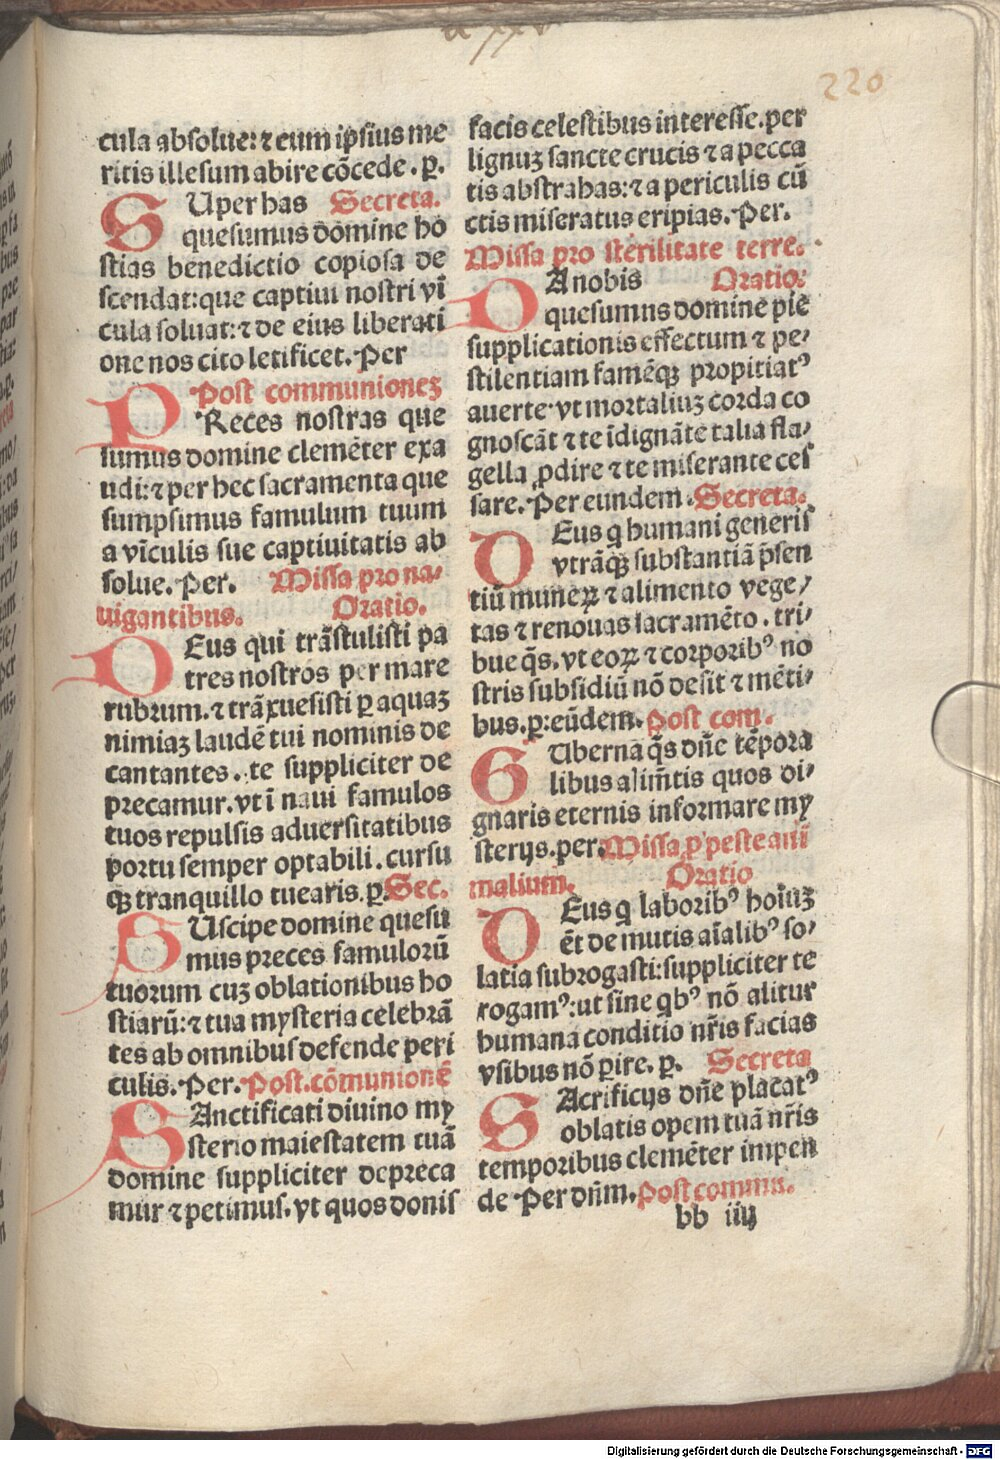 220
cula absolue: ⁊ eum ipsius me
ritis illesum abire cōcede. ꝑ.
SUper has Secreta.
quesumus domine ho
stias benedictio copiosa de
scendat: que captiui nostri vī
cula soluat: ⁊ de eius liberati
one nos cito letificet. Per
Post communioneꝫ
PReces nostras que
sumus domine clemēter exa
udi: ⁊ per hec sacramenta que
sumpsimus famulum tuum
a vīculis sue captiuitatis ab
solue. Per. Missa pro na⸗
uigantibus. Oratio.
DEus qui trāstulisti pa
tres nostros per mare
rubrum. ⁊ trāxuesisti ꝑ aquaꝫ
nimiaꝫ laudē tui nominis de
cantantes. te suppliciter de
precamur. vt ī naui famulos
tuos repulsis aduersitatibus
portu semper optabili. cursu
qꝫ tranquillo tuearis. ꝑ. Sec.
SUscipe domine quesu
mus preces famulorū
tuorum cuꝫ oblationibus ho
stiarū: ⁊ tua mysteria celebrā
tes ab omnibus defende peri
culis. Per. Post. cōmunionē
SAnctificati diuino my
sterio maiestatem tuā
domine suppliciter depreca
mur ⁊ petimus. vt quos donis
facis celestibus interesse. per
lignuꝫ sancte crucis ⁊ a pecca
tis abstrahas: ⁊ a periculis cū
ctis miseratus eripias. Per.
Missa pro sterilitate terre.
DA nobis Oratio:
quesumus domine pie
supplicationis effectum ⁊ pe⸗
stilentiam famēqꝫ propitiatꝰ
auerte vt mortaliuꝫ corda co
gnoscāt ⁊ te īdignāte talia fla⸗
gella ꝓdire ⁊ te miserante ces
sare. Per eundem. Secreta.
DEus q humani generis
vtrāqꝫ substantiā p̄sen
tiū muneꝝ ⁊ alimento vege⸗
tas ⁊ renouas sacramēto. tri⸗
bue q̄s. vt eoꝝ ⁊ corporibꝰ no
stris subsidiū nō desit ⁊ mēti⸗
bus. ꝑ: eūdem. Post com.
GUberna q̄s dn̄e tēpora
libus alim̄tis quos di⸗
gnaris eternis informare my
sterijs. per. Missa ꝓ peste ani
malium. Oratio
DEus q laboribꝰ hoīuꝫ
ēt de mutis aīalibꝰ so⸗
latia subrogasti: suppliciter te
rogamꝰ: ut sine qbꝰ nō alitur
humana conditio nr̄is facias
vsibus nō ꝑire. ꝑ. Secreta
SAcrificijs dn̄e placatꝰ
oblatis opem tuā nr̄is
temporibus clemēter impen
de Per dn̄m. Post commu.
bb iiij
Digitalisierung gefördert durch die Deutsche Forschungsgemeinschaft - DFG